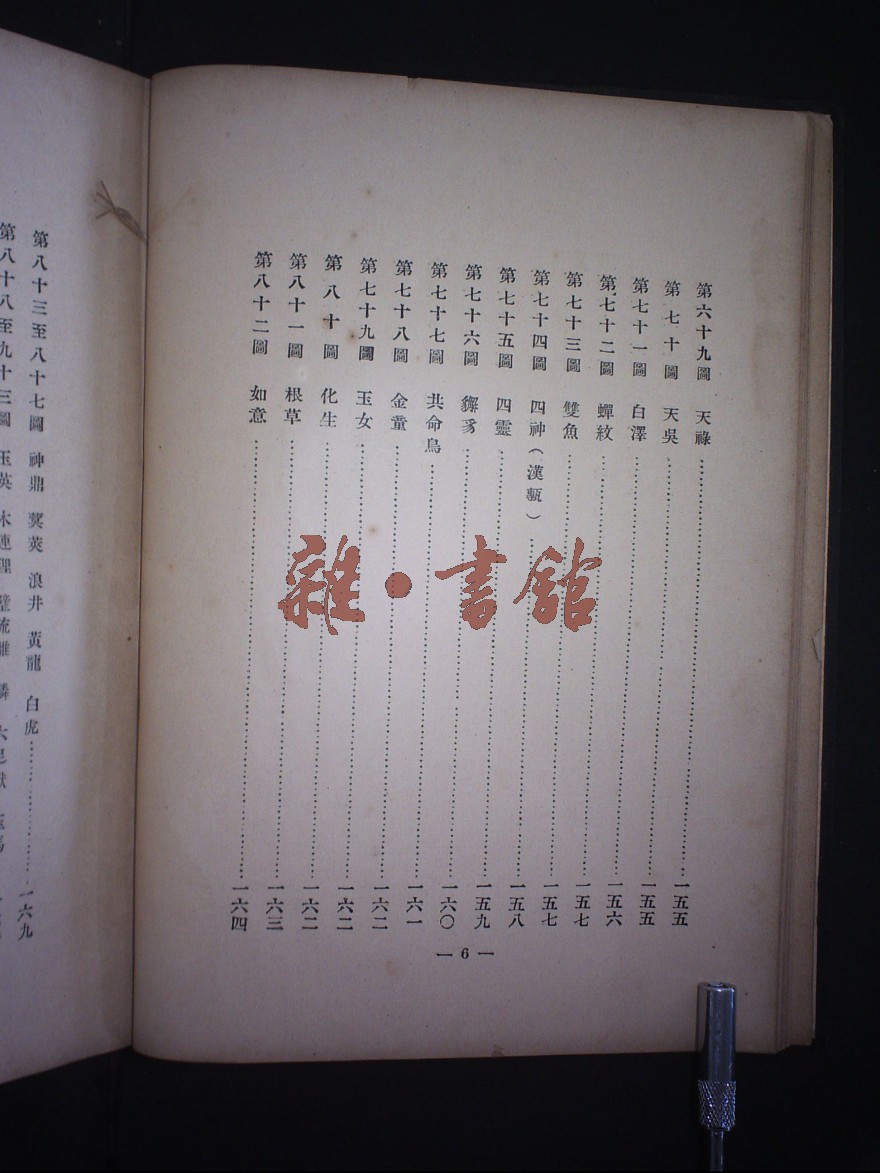 第六十九圖 天祿……一五五
第七十圖 天吳……一五五
第七十一圖 白澤……一五六
第七十二圖 蟬紋……一五七
第七十三圖 雙魚……一五七
第七十四圖 四神(漢甎)……一五八
第七十五圖 四靈……一五九
第七十六圖 獬豸……一六〇
第七十七圖 共命鳥……一六一
第七十八圖 金童……一六二
第七十九圖 玉女……一六二
第八十圖 化生……一六二
第八十一圖 根草……一六三
第八十二圖 如意……一六四
— 6 —
第八十三至八十七圖 神鼎 蓂莢 浪井 黃龍 白虎……一六九
第八十八至九十三圖 玉英 木連理 璧流離 麟 六足獸
雜·書館